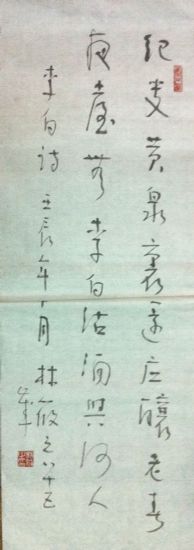 纪叟黄泉裏還应釀老春
夜臺無李白沽酒與何人
李白詩 壬辰年 月 林筱之八十五